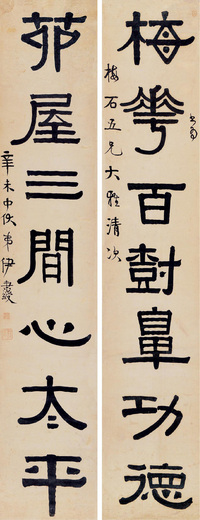 梅華百樹鼻功德
梅石五兄大雅清
茆屋三間心太平
辛未中伏弟伊秉綬